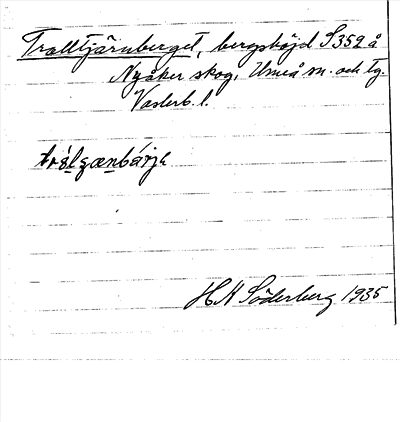 Tralltjärnberget, bergshöjd S352 å
Nyåker skog, Umeå sn. och tg.
Västerb. l.
H K Söderberg 1935